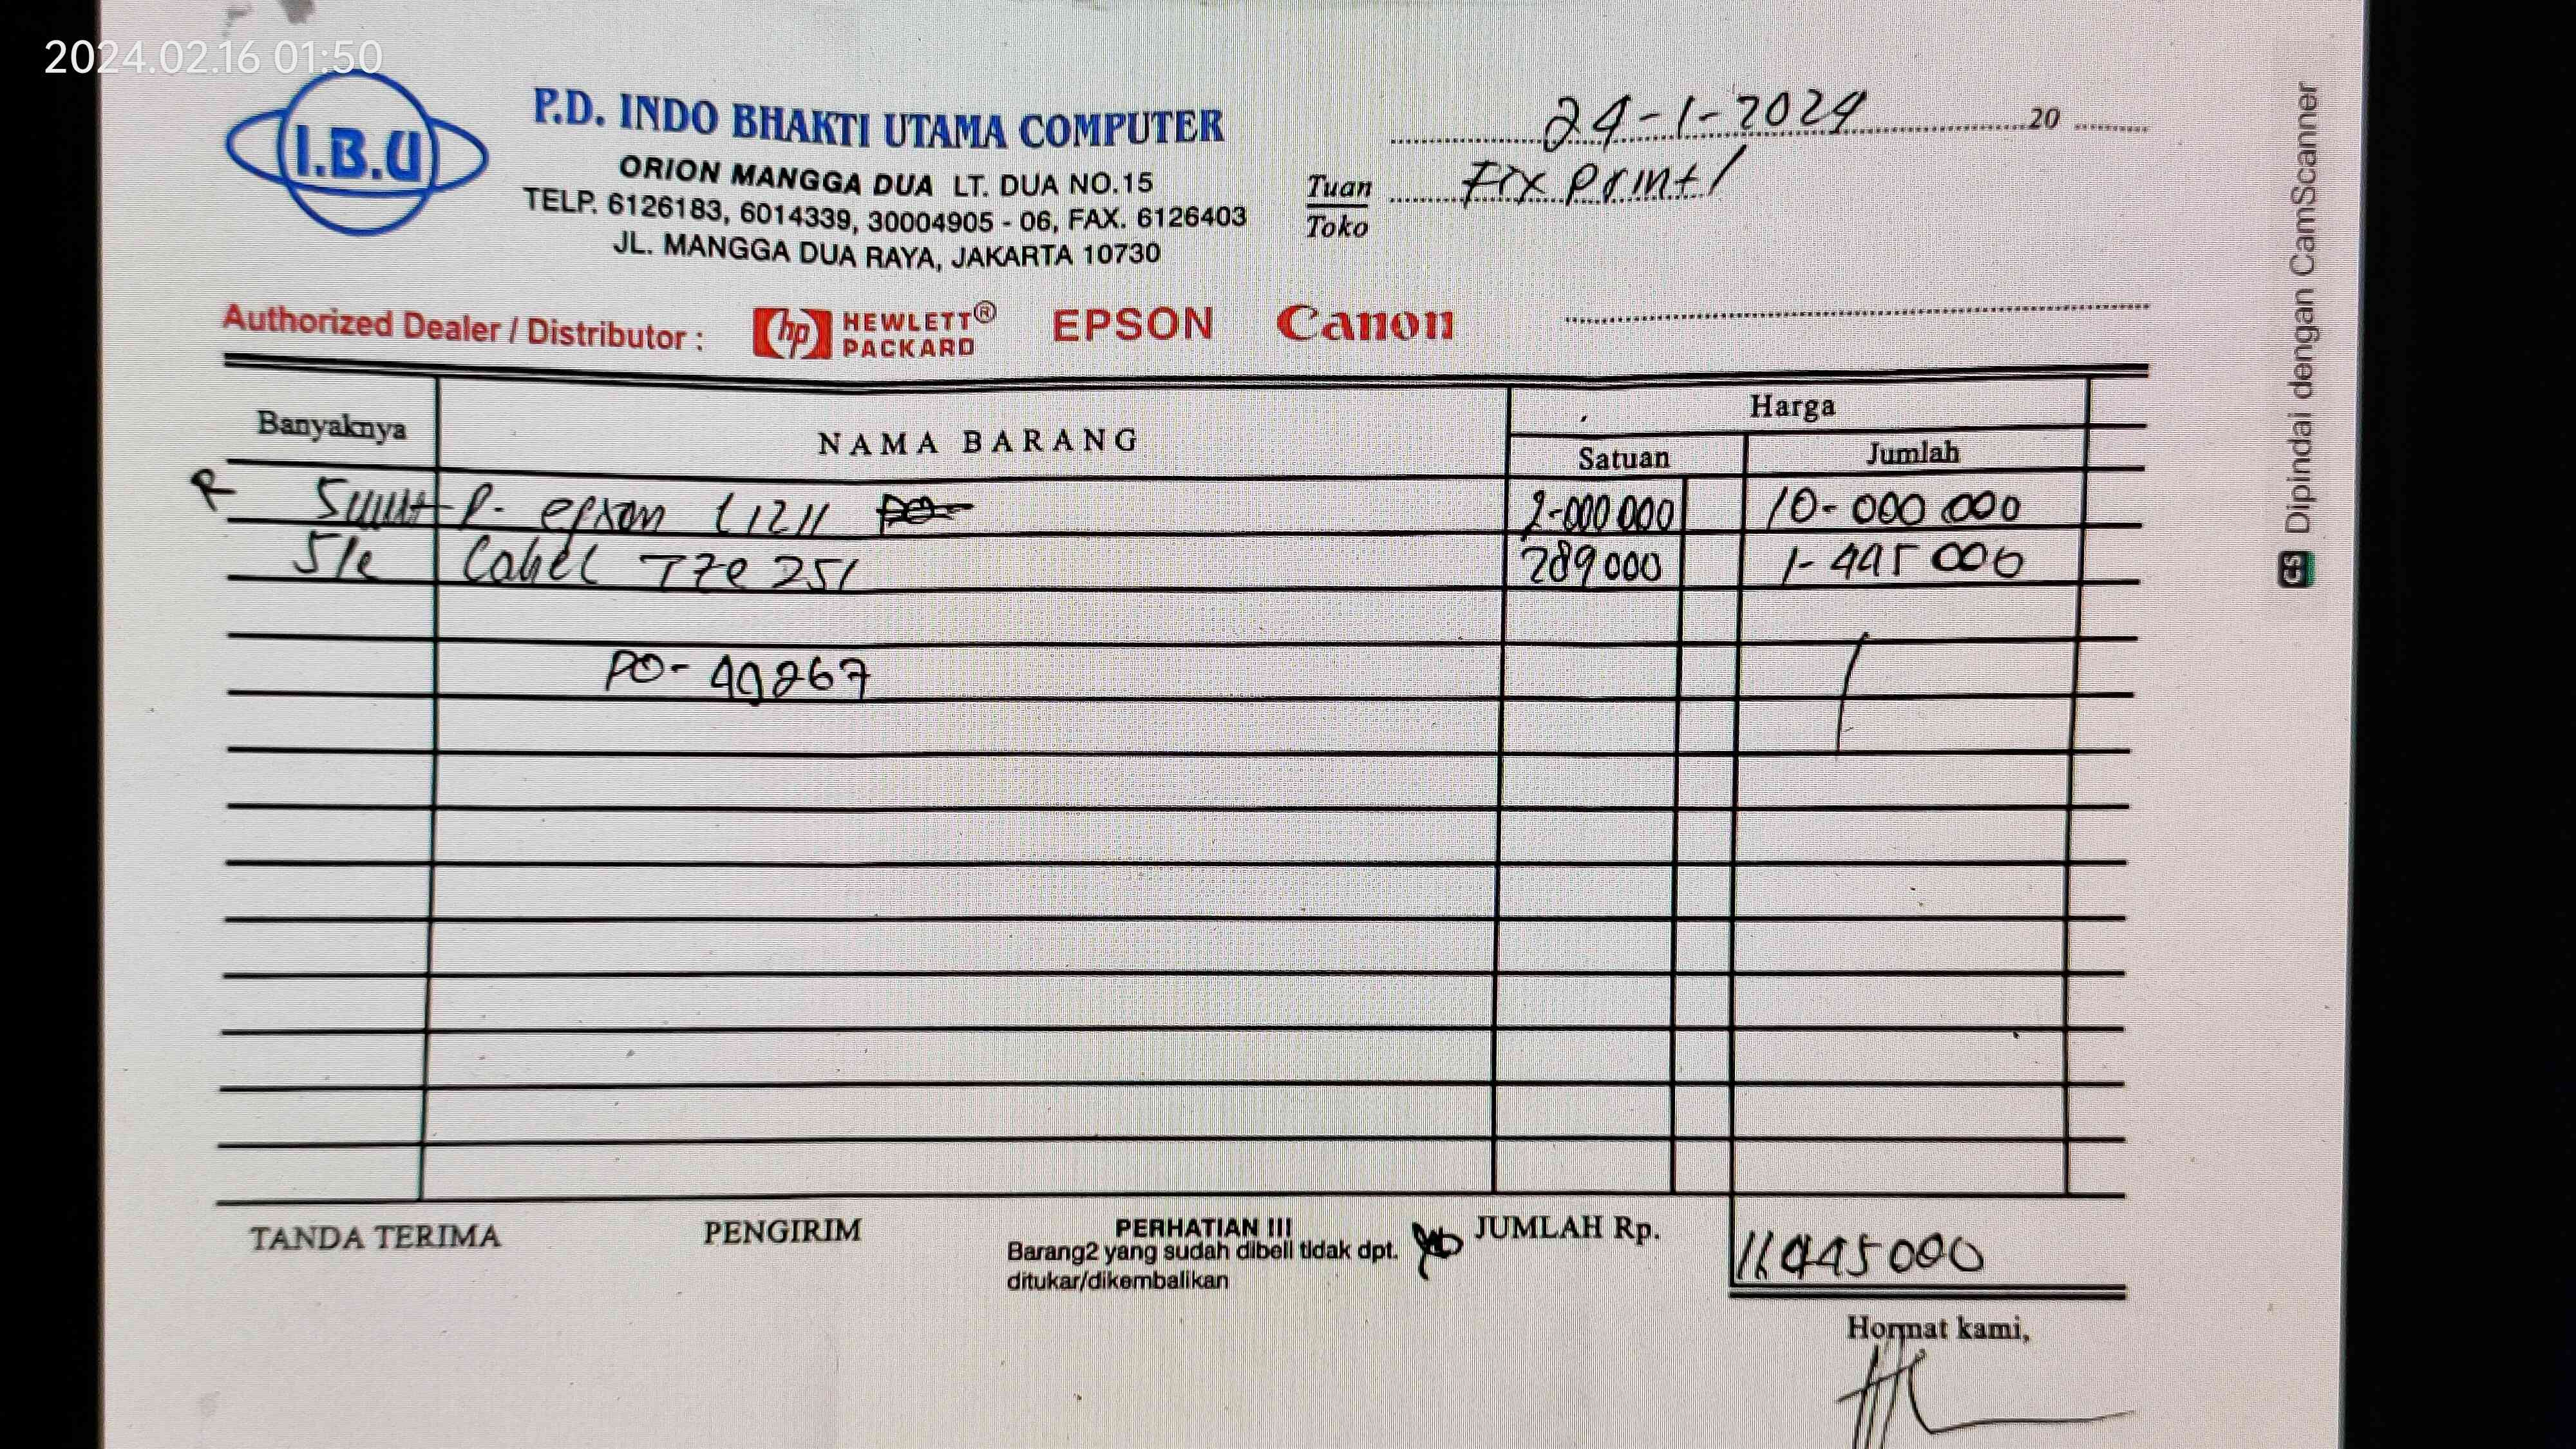 2024.02.16 01:50
I.B.U
P.D. INDO BHAKTI UTAMA COMPUTER
ORION MANGGA DUA LT. DUA NO.15
TELP. 6126183, 6014339, 30004905 - 06, FAX. 6126403
JL. MANGGA DUA RAYA, JAKARTA 10730
24-1-2024 20
Tuan
Toko
Fix Print/
Authorized Dealer / Distributor : hp HEWLETT® PACKARD EPSON Canon
Banyaknya NAMA BARANG Harga
Satuan Jumlah
5 P. epson L1211 2-000 000 10-000 000
5 Label TZe 251 289 000 1-445 000
PO-49267
TANDA TERIMA PENGIRIM PERHATIAN III JUMLAH Rp. 11445000
Barang2 yang sudah dibeli tidak dpt.
ditukar/dikembalikan
Hormat kami,
Dipindai dengan CamScanner